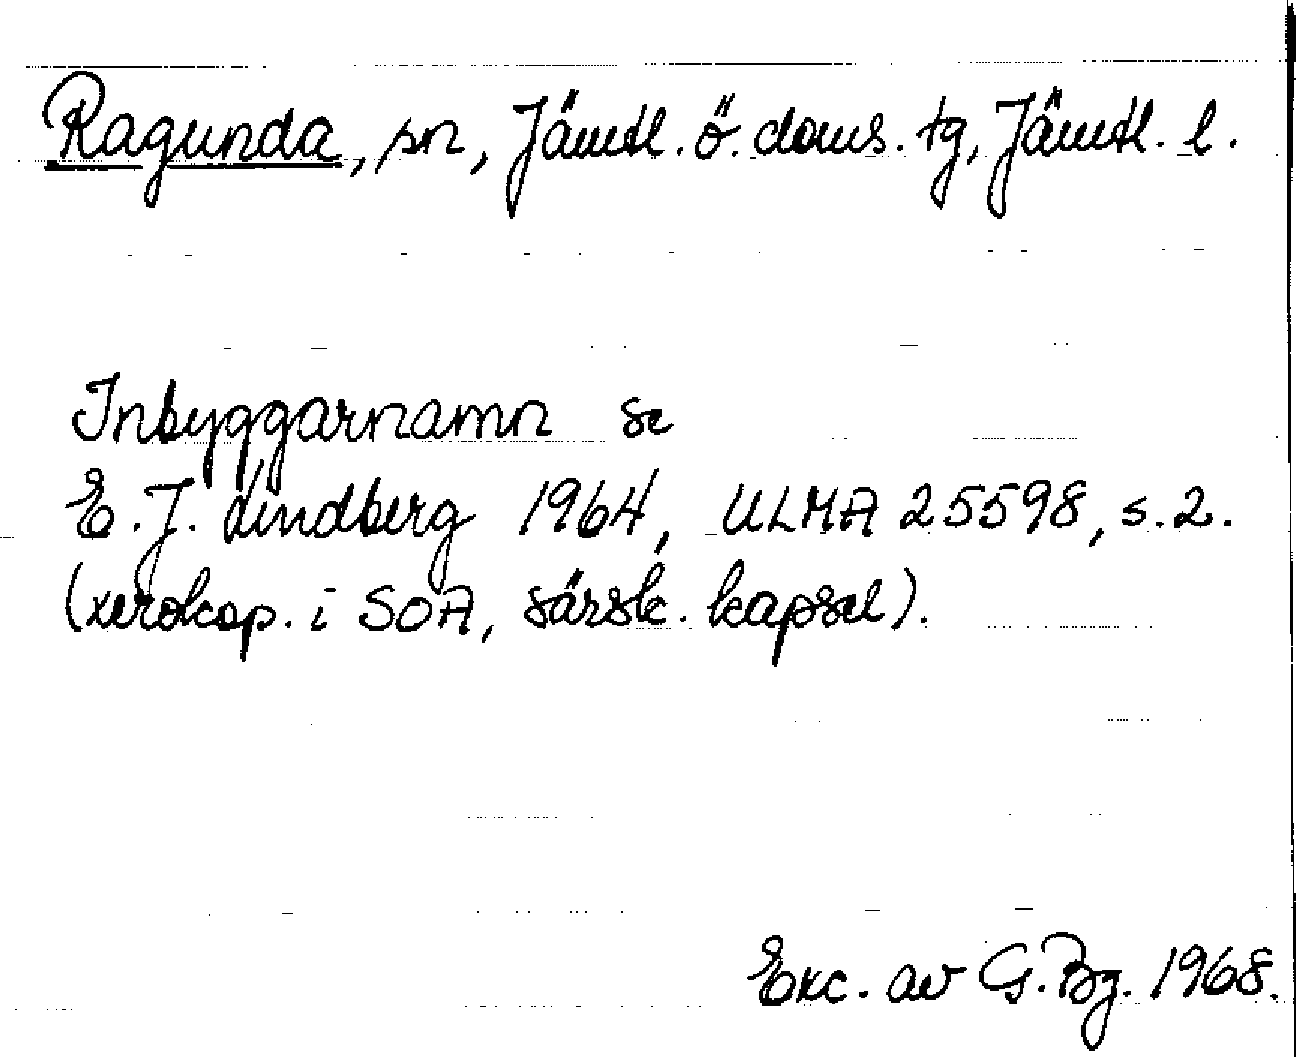 Ragunda, sn, Jämtl. ö. doms. tg, Jämtl. l.
Inbyggarnamn se
E. J. Lindberg 1964, ULMA 25598, s. 2.
(xerokop. i SOA, särsk. kapsel).
Exc. av G. Bg. 1968.